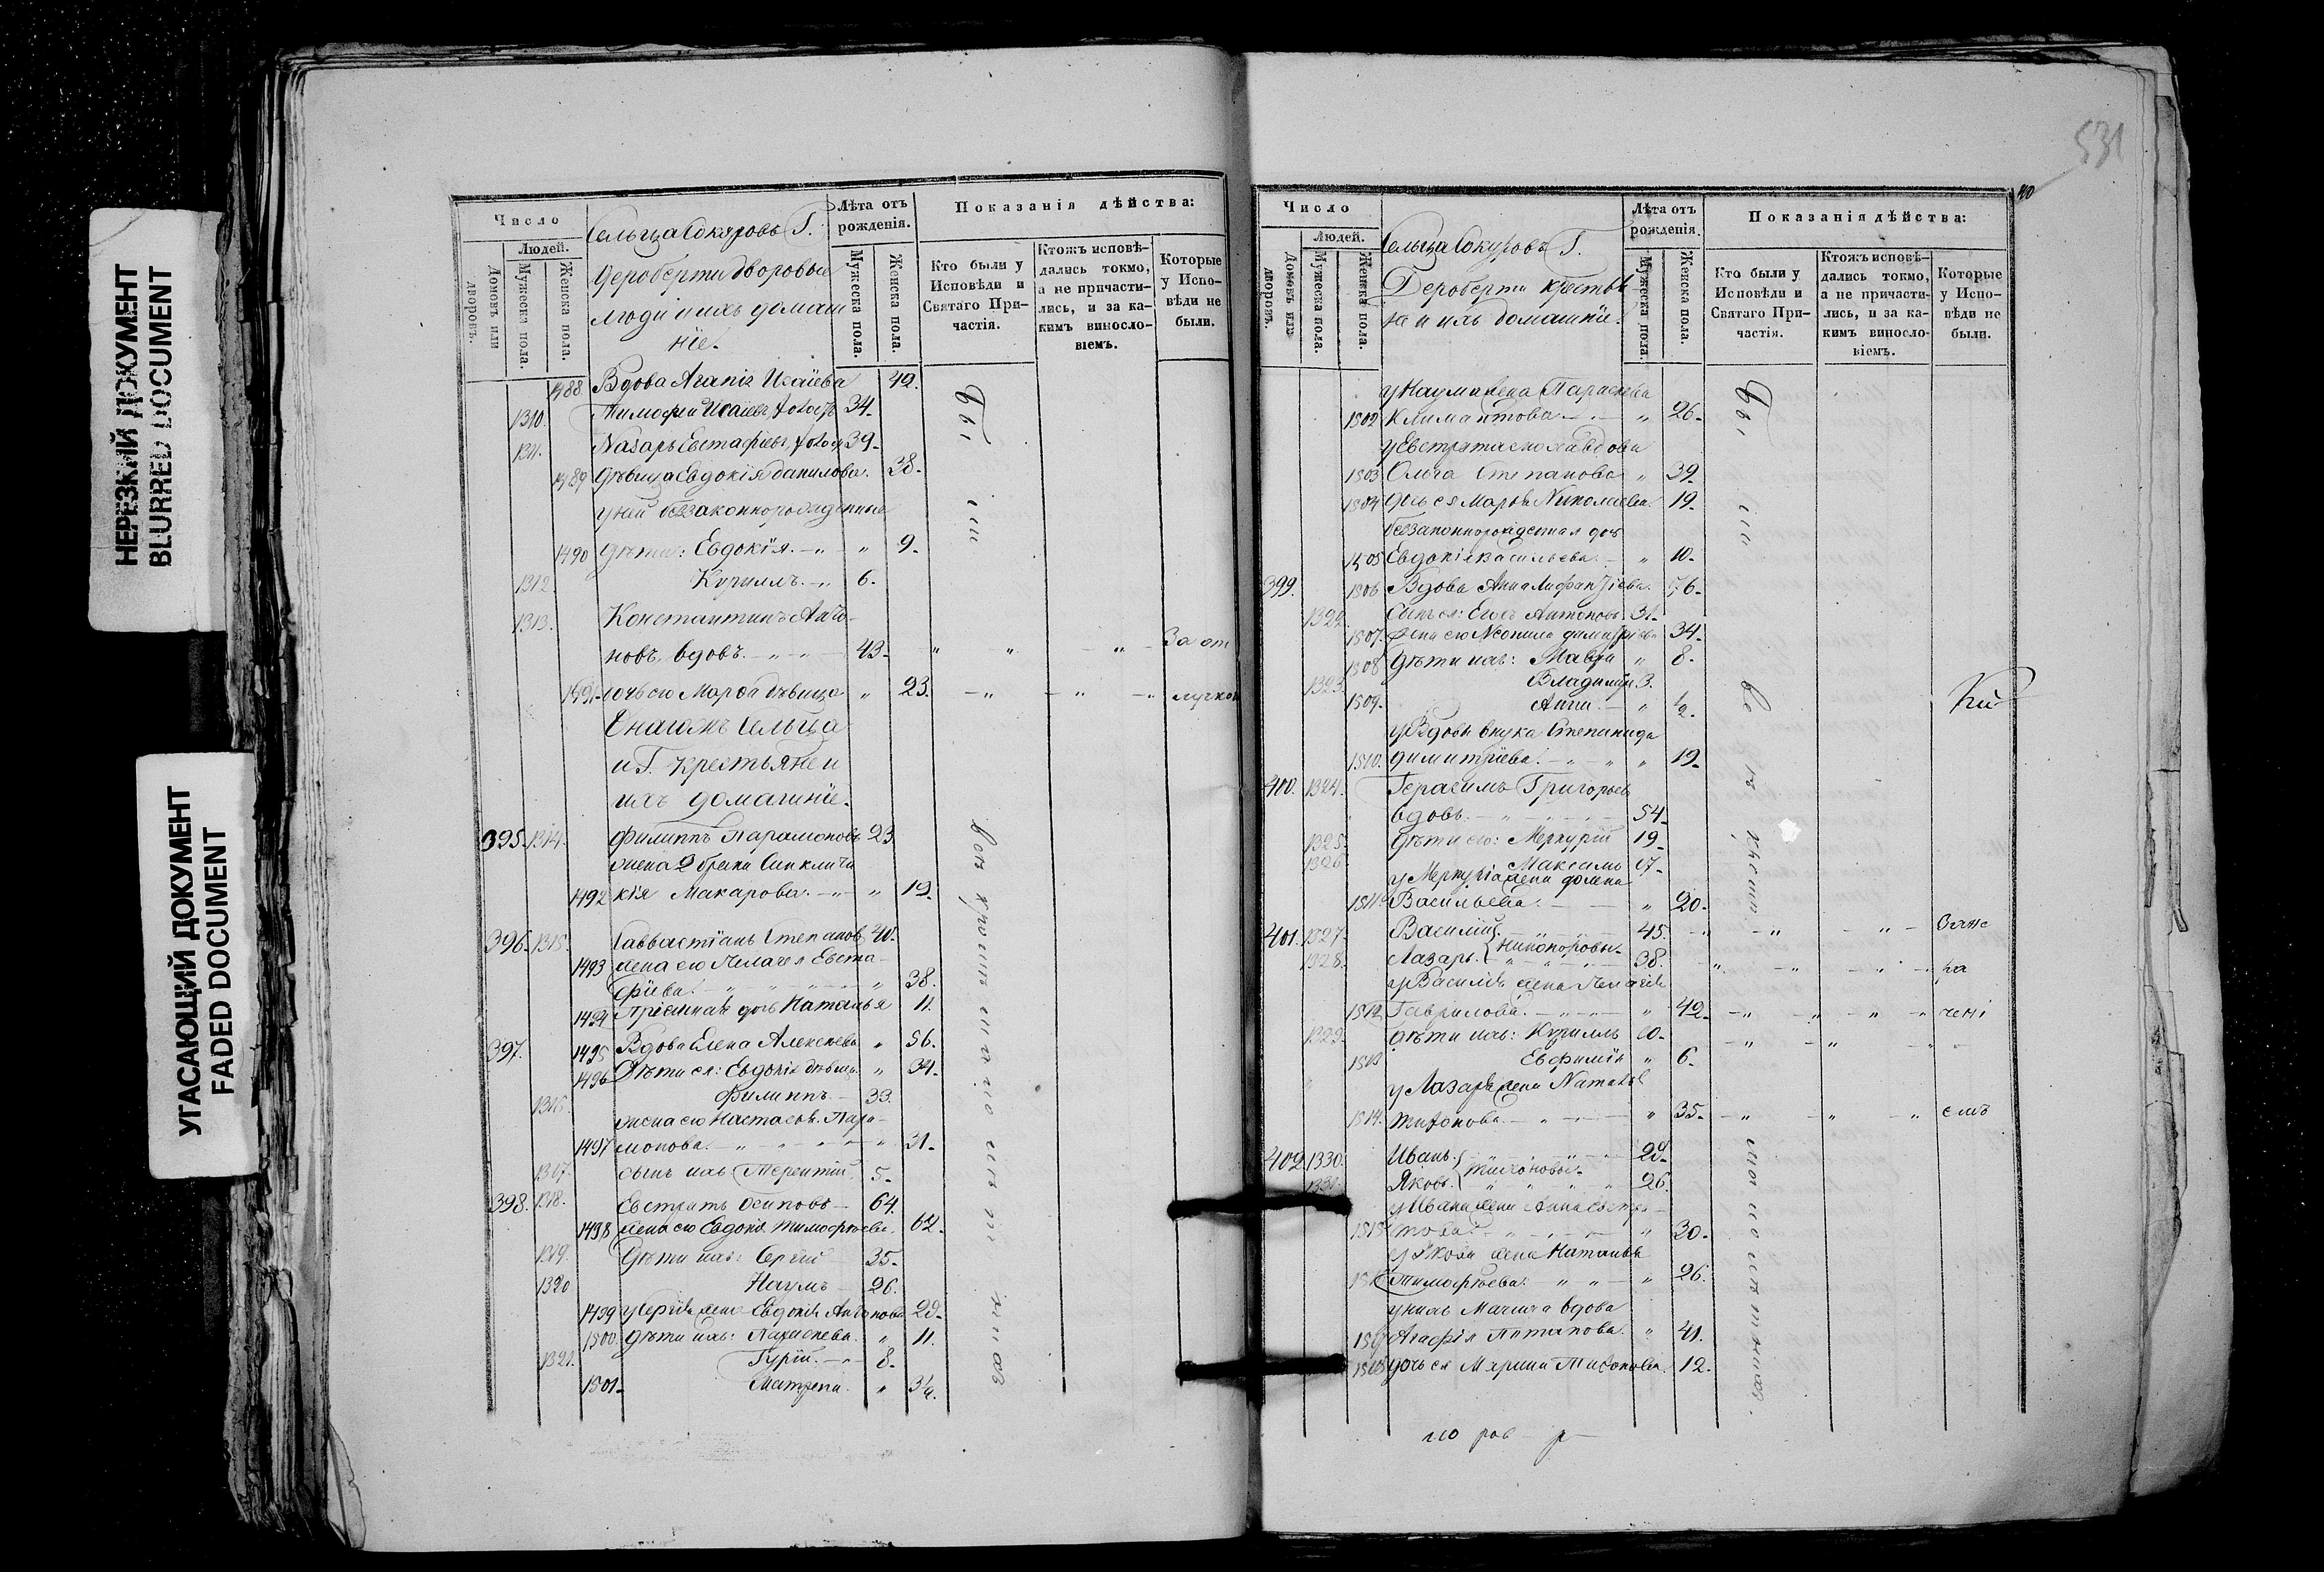 НЕРЕЗКИЙ ДОКУМЕНТ
BLURRED DOCUMENT
УГАСАЮЩИЙ ДОКУМЕНТ
FADED DOCUMENT
Число
Людей.
Домовъ или дворовъ.
Мужеска пола.
Женска пола.
Сельца Сокуровъ Г.
Дероберти дворовые
люди и ихъ домаш
нїе.
Лѣта отъ рожденія.
Мужеска пола.
Женска пола.
Показанія дѣйства:
Кто были у Исповѣди и Святаго Причастія.
Ктожъ исповѣдались токмо, а не причастились, и за какимъ винословіемъ.
Которые у Исповѣди не были.
1488 Вдова Агапія Исаїева 42.
1310. Тимофей Исаїевъ холостъ 34.
1311. Назаръ Евстафїевъ холост 39.
1489 Дѣвица Евдокїя Данилова. 38.
у ней беззаконнорожденные
1490 дѣти: Евдокїя. " 9.
1312. Кириллъ. 6.
1313. Константинъ
новъ, вдовъ. 43. За от
1491 дочь его Марфа дѣвица " 23. лучкой
Сельца
и Г. крестьяне и
ихъ домашнїе.
395. 1314. Филиппъ Парамоновъ 23
жена 2 брака Синклити
1492 кїя Макарова. " 19.
396. 1315. Савастїанъ Степановъ 40.
1493 жена его Пелагея Евста
фїева. " 38.
1494 Прїемная дочь Наталья 11.
397. 1495 Вдова Елена Алексеева " 56.
1496 Дѣти ея: Евдокія дѣвица " 34.
1316. Филиппъ 33.
жена его Настасья Пара
1497 монова. " 31.
1317. сынъ ихъ Терентїй 5.
398. 1318. Евстратъ Осиповъ 64.
1498 жена его Евдокія Тимофѣева. 62.
1319. Дѣти ихъ: Сергїй 35.
1320 Наумъ 26.
1499 у Сергія жена Евдокія Антонова 29.
1500. дѣти ихъ: Параскева. " 11.
1321. Гурїй. 8.
1501. Матрена. " 3/4.
Бы
ли
531
40
Число
Людей.
Домовъ или дворовъ.
Мужеска пола.
Женска пола.
Сельца Сокуровъ Г.
Дероберти крестья
не и ихъ домашнїе.
Лѣта отъ рожденія.
Мужеска пола.
Женска пола.
Показанія дѣйства:
Кто были у Исповѣди и Святаго Причастія.
Ктожъ исповѣдались токмо, а не причастились, и за какимъ винословіемъ.
Которые у Исповѣди не были.
у Наума жена Параскева
1502 Климантова " 26.
у Евстрата сноха вдова
1503 Ольга Степанова " 39
1504 дочь ея Марья Николаева. 19.
беззаконнорожденная дочь
1505 Евдокія Васильева " 10.
399. 1506 Вдова Анна 56.
1322. Сынъ ея: Антоновъ 31.
1507. жена его Неонила Димитрїева 34.
1508 дѣти ихъ: Мавра " 8.
1323. Владимїръ 3.
1509. Анна " 1/2.
у Вдовы внука Степанида
1510. Димитрїева. " 19.
400. 1324. Герасимъ Григорьевъ
вдовъ. 54.
1325. дѣти его: Меркурїй 19.
1326. Максимъ 17.
у Меркурія жена
1511. Васильева. " 20.
401. 1327. Василій 45. Зане
1328. Лазарь Никоноровы 38. ра
у Василія жена Пелагея
1512 Гаврилова. " 42. ченї
1329. дѣти ихъ: Кириллъ 10.
1513 Евфимїя " 6.
у Лазаря жена Наталья
1514. Тихонова. " 35. емъ
402. 1330. Иванъ 29.
1331. Яковъ Тихоновы 26.
у Ивана жена Анна Евстра
1515 това " 30.
у Якова жена Наталья
1516 Тимофѣева. " 26.
у нихъ Мачиха вдова
1517 Агафія Потапова. " 41.
1518 дочь ея Марина Тихонова. 12.
Бы
ли